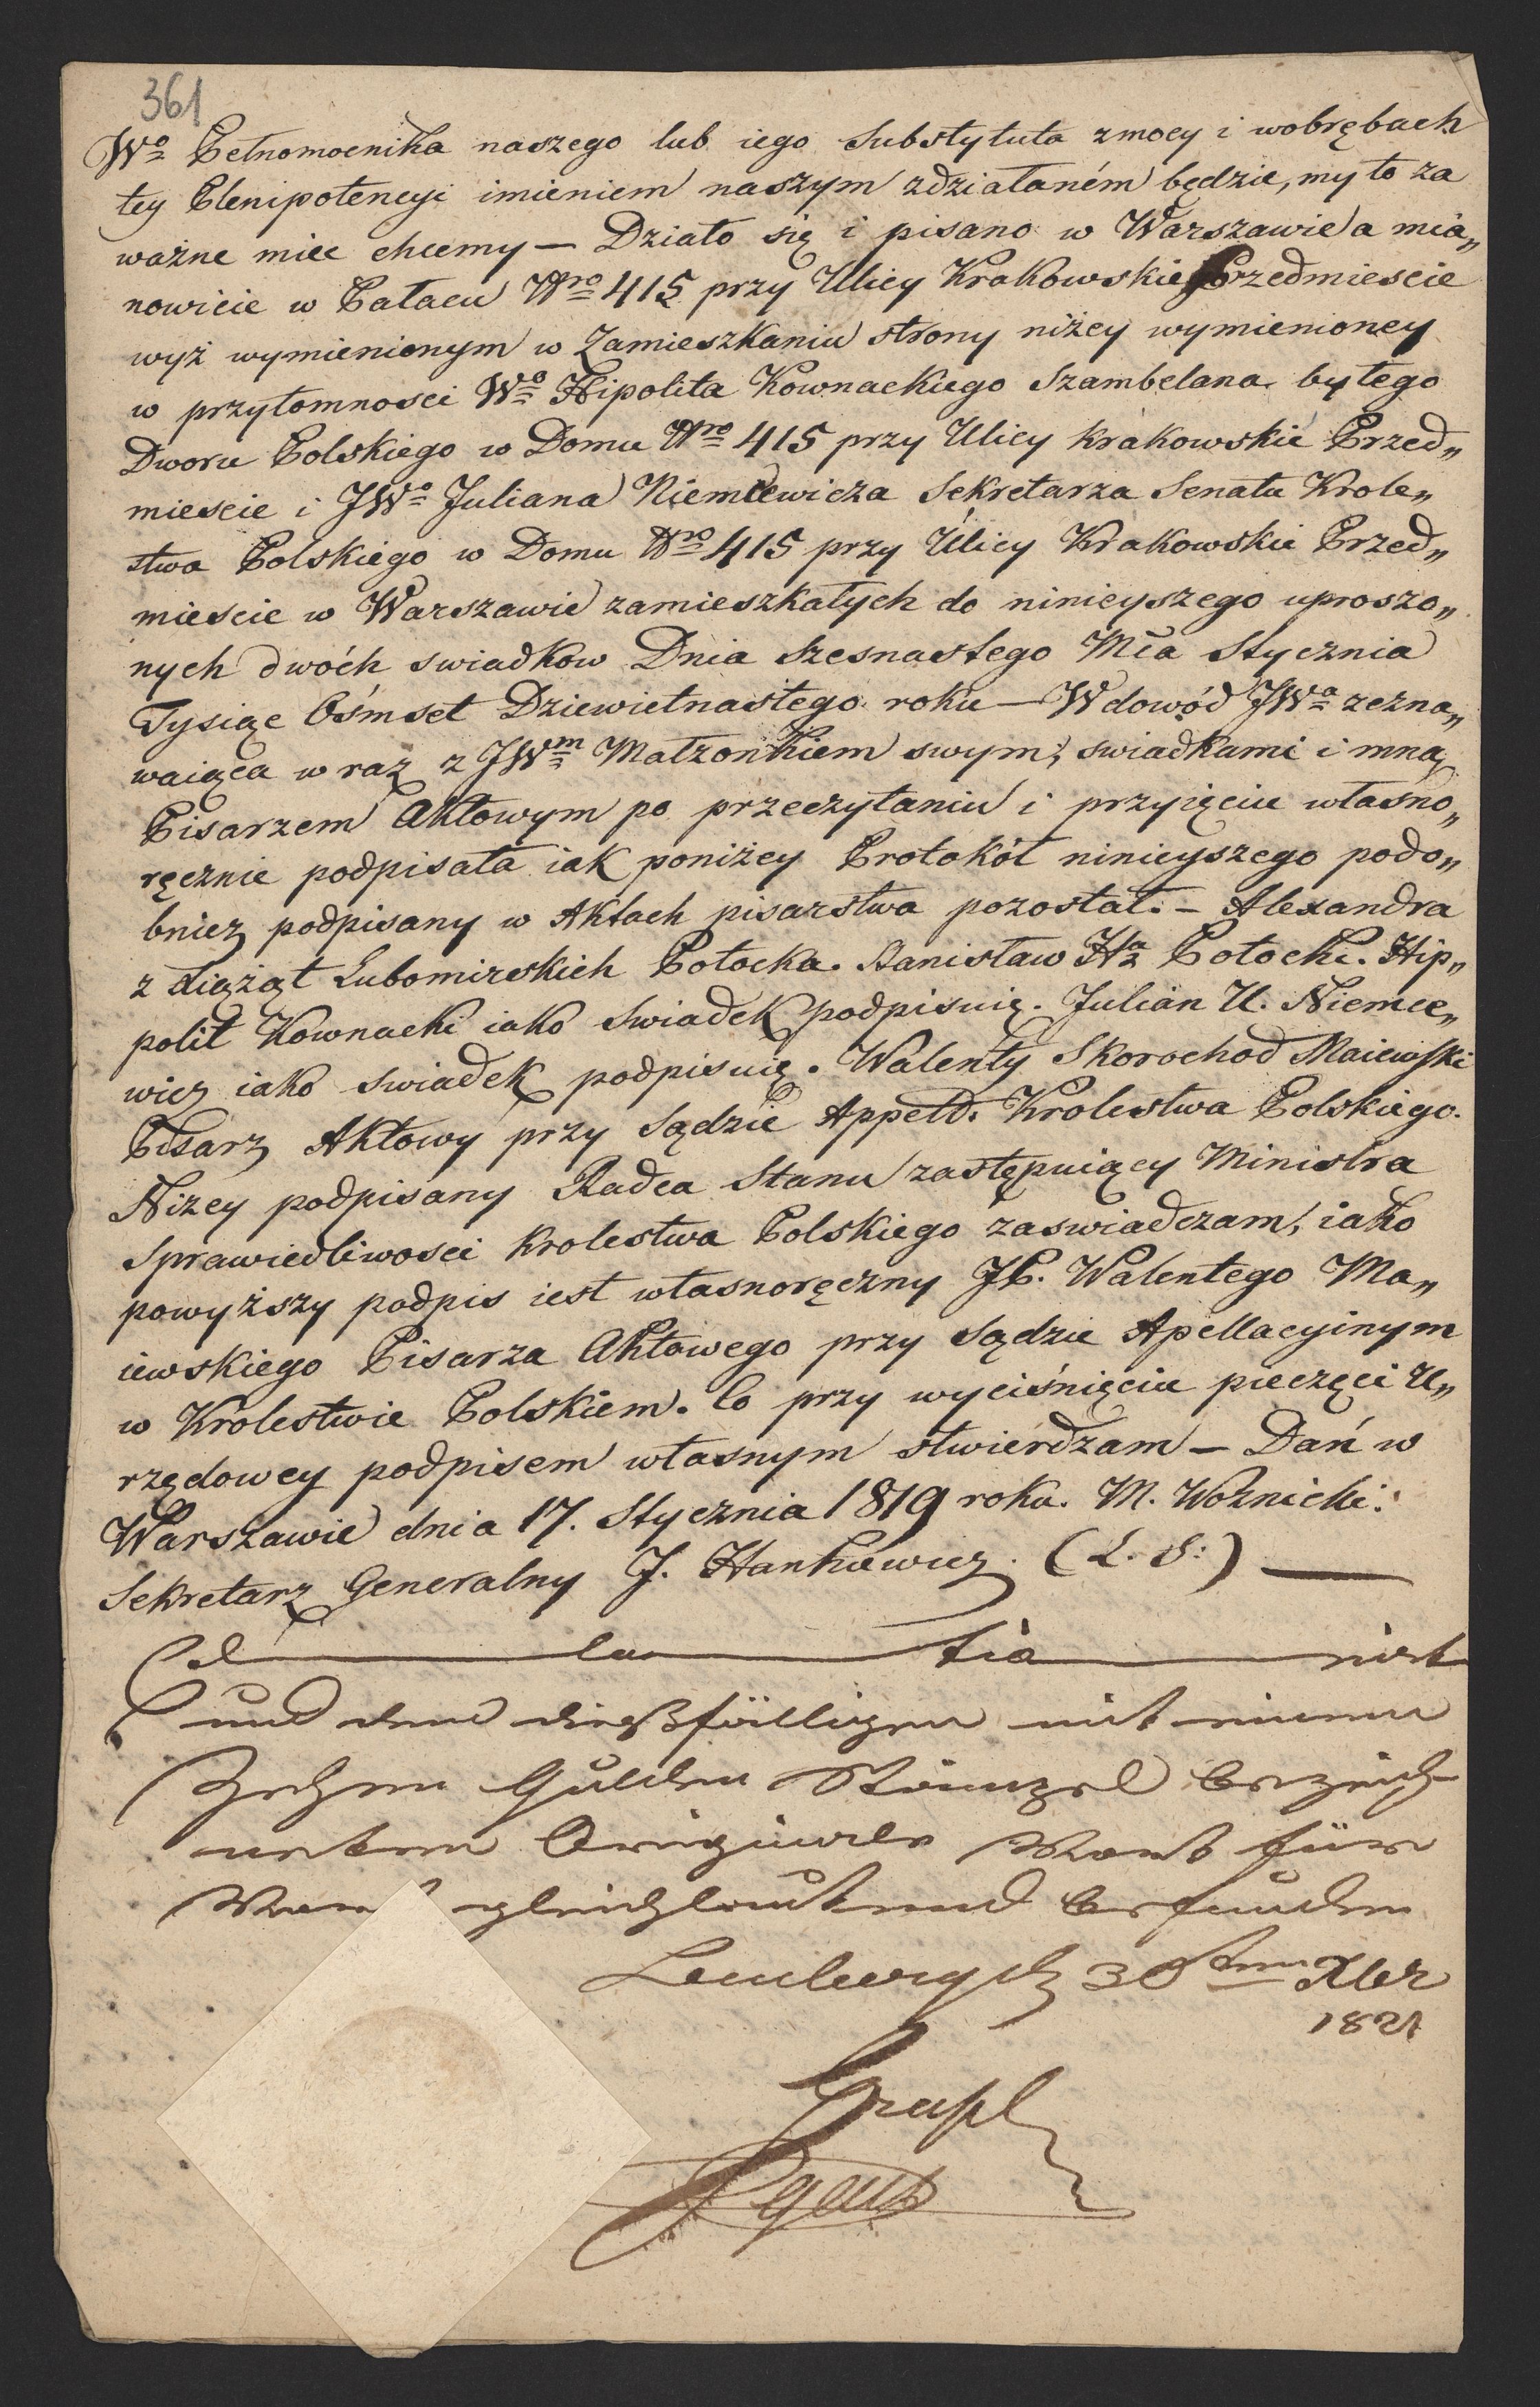 361
Wo Pełnomocnika naszego lub iego Substytuta zmocy i wobrębach
tey Plenipotencyi imieniem naszym zdziałaném będzie, my to za
ważne miec chcemy — Działo się i pisano w Warszawie a mia„
nowicie w Pałacu Nro 415 przy Ulicy Krakowskie Przedmiescie
wyż wymienionym w Zamieszkaniu strony niżey wymienioney
w przytomnosci Wo Hipolita Kownackiego Szambelana bytego
Dworu Polskiego w Domu Nro 415 przy Ulicy Krakowskie Przed„
miescie i JWo Juliana Niemcewicza Sekretarza Senatu Krole„
stwa Polskiego w Domu Nro 415 przy Ulicy Krakowskie Przed„
miescie w Warszawie zamieszkałych do ninieyszego uproszo„
nych dwóch swiadkow Dnia szesnastego Mca Stycznia
Tysiąc Ośmset Dziewietnastego roku — W dowód JWa zezna„
waiąca wraz z JWm Małzonkiem swym, swiadkami i mną
Pisarzem Aktowym po przeczytaniu i przyięciu własno„
ręcznie podpisała iak poniżey Protokół ninieyszego podo„
bniez podpisany w Aktach pisarstwa pozostał. — Alexandra
z Xiążąt Lubomirskich Potocka. Stanisław Hra Potocki. Hip„
polit Kownacki iako swiadek podpisuię. Julian U. Niemce„
wicz iako swiadek podpisuię. Walenty Skorochod Maiewski
Pisarz Aktowy przy Sądzie Appell. Krolestwa Polskiego.
Niżey podpisany Radca Stanu zastępuiący Ministra
Sprawiedliwosci Krolestwa Polskiego zaswiadczam, iako
powyższy podpis iest własnoręczny JP. Walentego Ma„
iewskiego Pisarza Aktowego przy Sądzie Apellacyinym
w Krolestwie Polskiem. Co przy wyciśnięciu pieczęci U„
rzędowey podpisem własnym stwierdzam — Dań w
Warszawie dnia 17. Stycznia 1819 roku. M. Woźnicki.
Sekretarz Generalny J. Hankiewicz. (L. S:) —
Col la tio nirt
und dem dießfälligen mit einem
Zehen Gulden Stämpel bezeich-
netem Originale Wort für
Wort gleichlautend befunden
Lemberg den 30ten Xber
1821